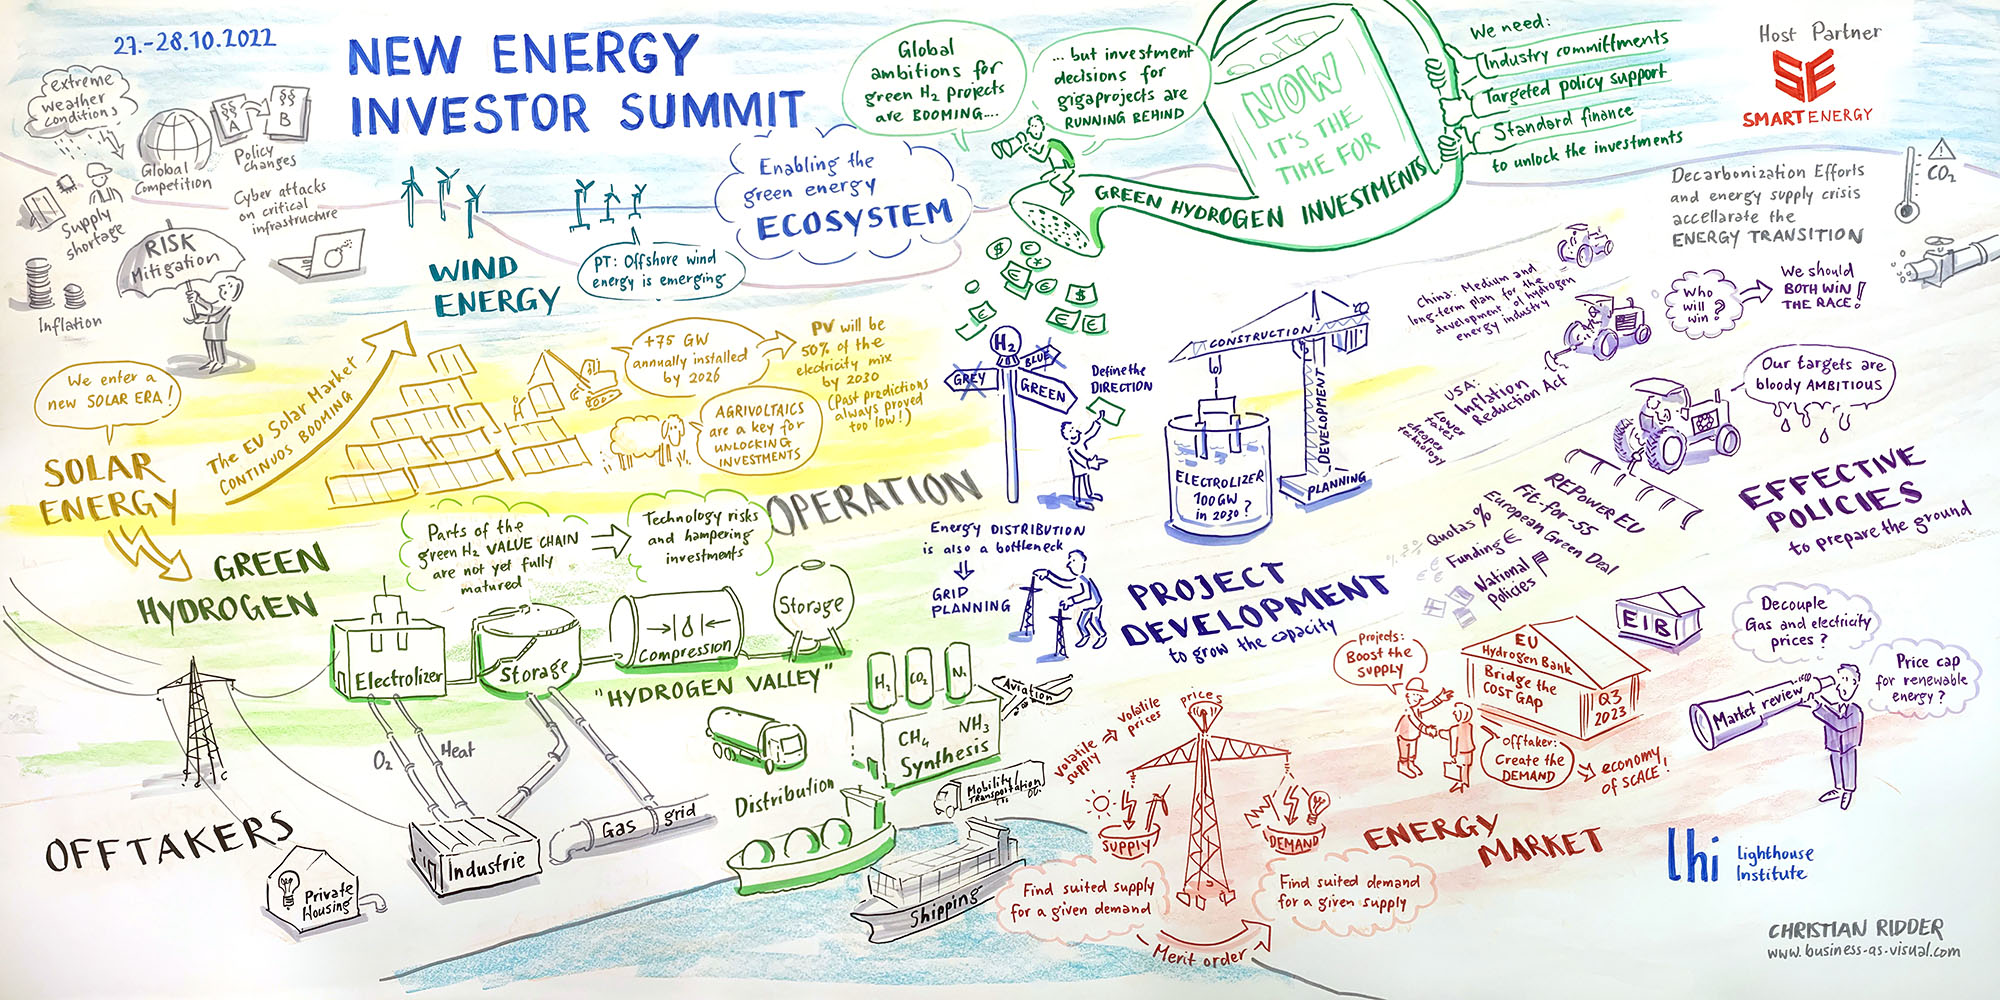 27.-28.10.2022
NEW ENERGY
INVESTOR SUMMIT
extreme
weather
conditions
Global
Competition
§§
A
§§
B
Policy
changes
Supply
shortage
Cyber attacks
on critical
infrastructure
RISK
Mitigation
Inflation
WIND
ENERGY
PT: Offshore wind
energy is emerging
Enabling the
green energy
ECOSYSTEM
Global
ambitions for
green H₂ projects
are BOOMING....
... but investment
decisions for
gigaprojects are
RUNNING BEHIND
NOW
IT'S THE
TIME FOR
GREEN HYDROGEN INVESTMENTS
We need:
Industry committments
Targeted policy support
Standard finance
to unlock the investments
Host Partner
SE
SMARTENERGY
Decarbonization Efforts
and energy supply crisis
accellarate the
ENERGY TRANSITION
CO₂
We enter a
new SOLAR ERA!
SOLAR
ENERGY
The EU Solar Market
CONTINUOS BOOMING
+75 GW
annually installed
by 2026
PV will be
50% of the
electricity mix
by 2030
(Past predictions
always proved
too low!)
AGRIVOLTAICS
are a key for
UNLOCKING
INVESTMENTS
H₂
GREY
BLUE
GREEN
Define the
DIRECTION
CONSTRUCTION
DEVELOPMENT
PLANNING
ELECTROLIZER
100GW
in 2030?
China: Medium and
long-term plan for the
development of hydrogen
energy industry
Who
will
win?
We should
BOTH WIN
THE RACE!
USA:
Inflation
Reduction Act
Lower
Taxes
cheaper
technology
Our targets are
bloody AMBITIOUS
EFFECTIVE
POLICIES
to prepare the ground
REPower EU
Fit-for-55
European Green Deal
Quotas %
Funding €
National
Policies
OPERATION
Energy DISTRIBUTION
is also a bottleneck
GRID
PLANNING
PROJECT
DEVELOPMENT
to grow the capacity
GREEN
HYDROGEN
Parts of the
green H₂ VALUE CHAIN
are not yet fully
matured
Technology risks
and hampering
investments
Electrolizer
Storage
Compression
Storage
"HYDROGEN VALLEY"
O₂
Heat
H₂
CO₂
N₂
CH₄
NH₃
Synthesis
Aviation
Distribution
Mobility/
Transportation
Shipping
OFFTAKERS
Private
Housing
Industrie
Gas grid
Volatile
supply
Volatile
prices
prices
SUPPLY
DEMAND
Find suited supply
for a given demand
Find suited demand
for a given supply
Merit order
ENERGY
MARKET
Projects:
Boost the
SUPPLY
Offtaker:
Create the
DEMAND
economy
of SCALE!
EU
Hydrogen Bank
Bridge the
COST GAP
Q3
2023
EIB
Decouple
Gas and electricity
prices?
Price cap
for renewable
energy?
Market review
lhi
Lighthouse
Institute
CHRISTIAN RIDDER
www.business-as-visual.com